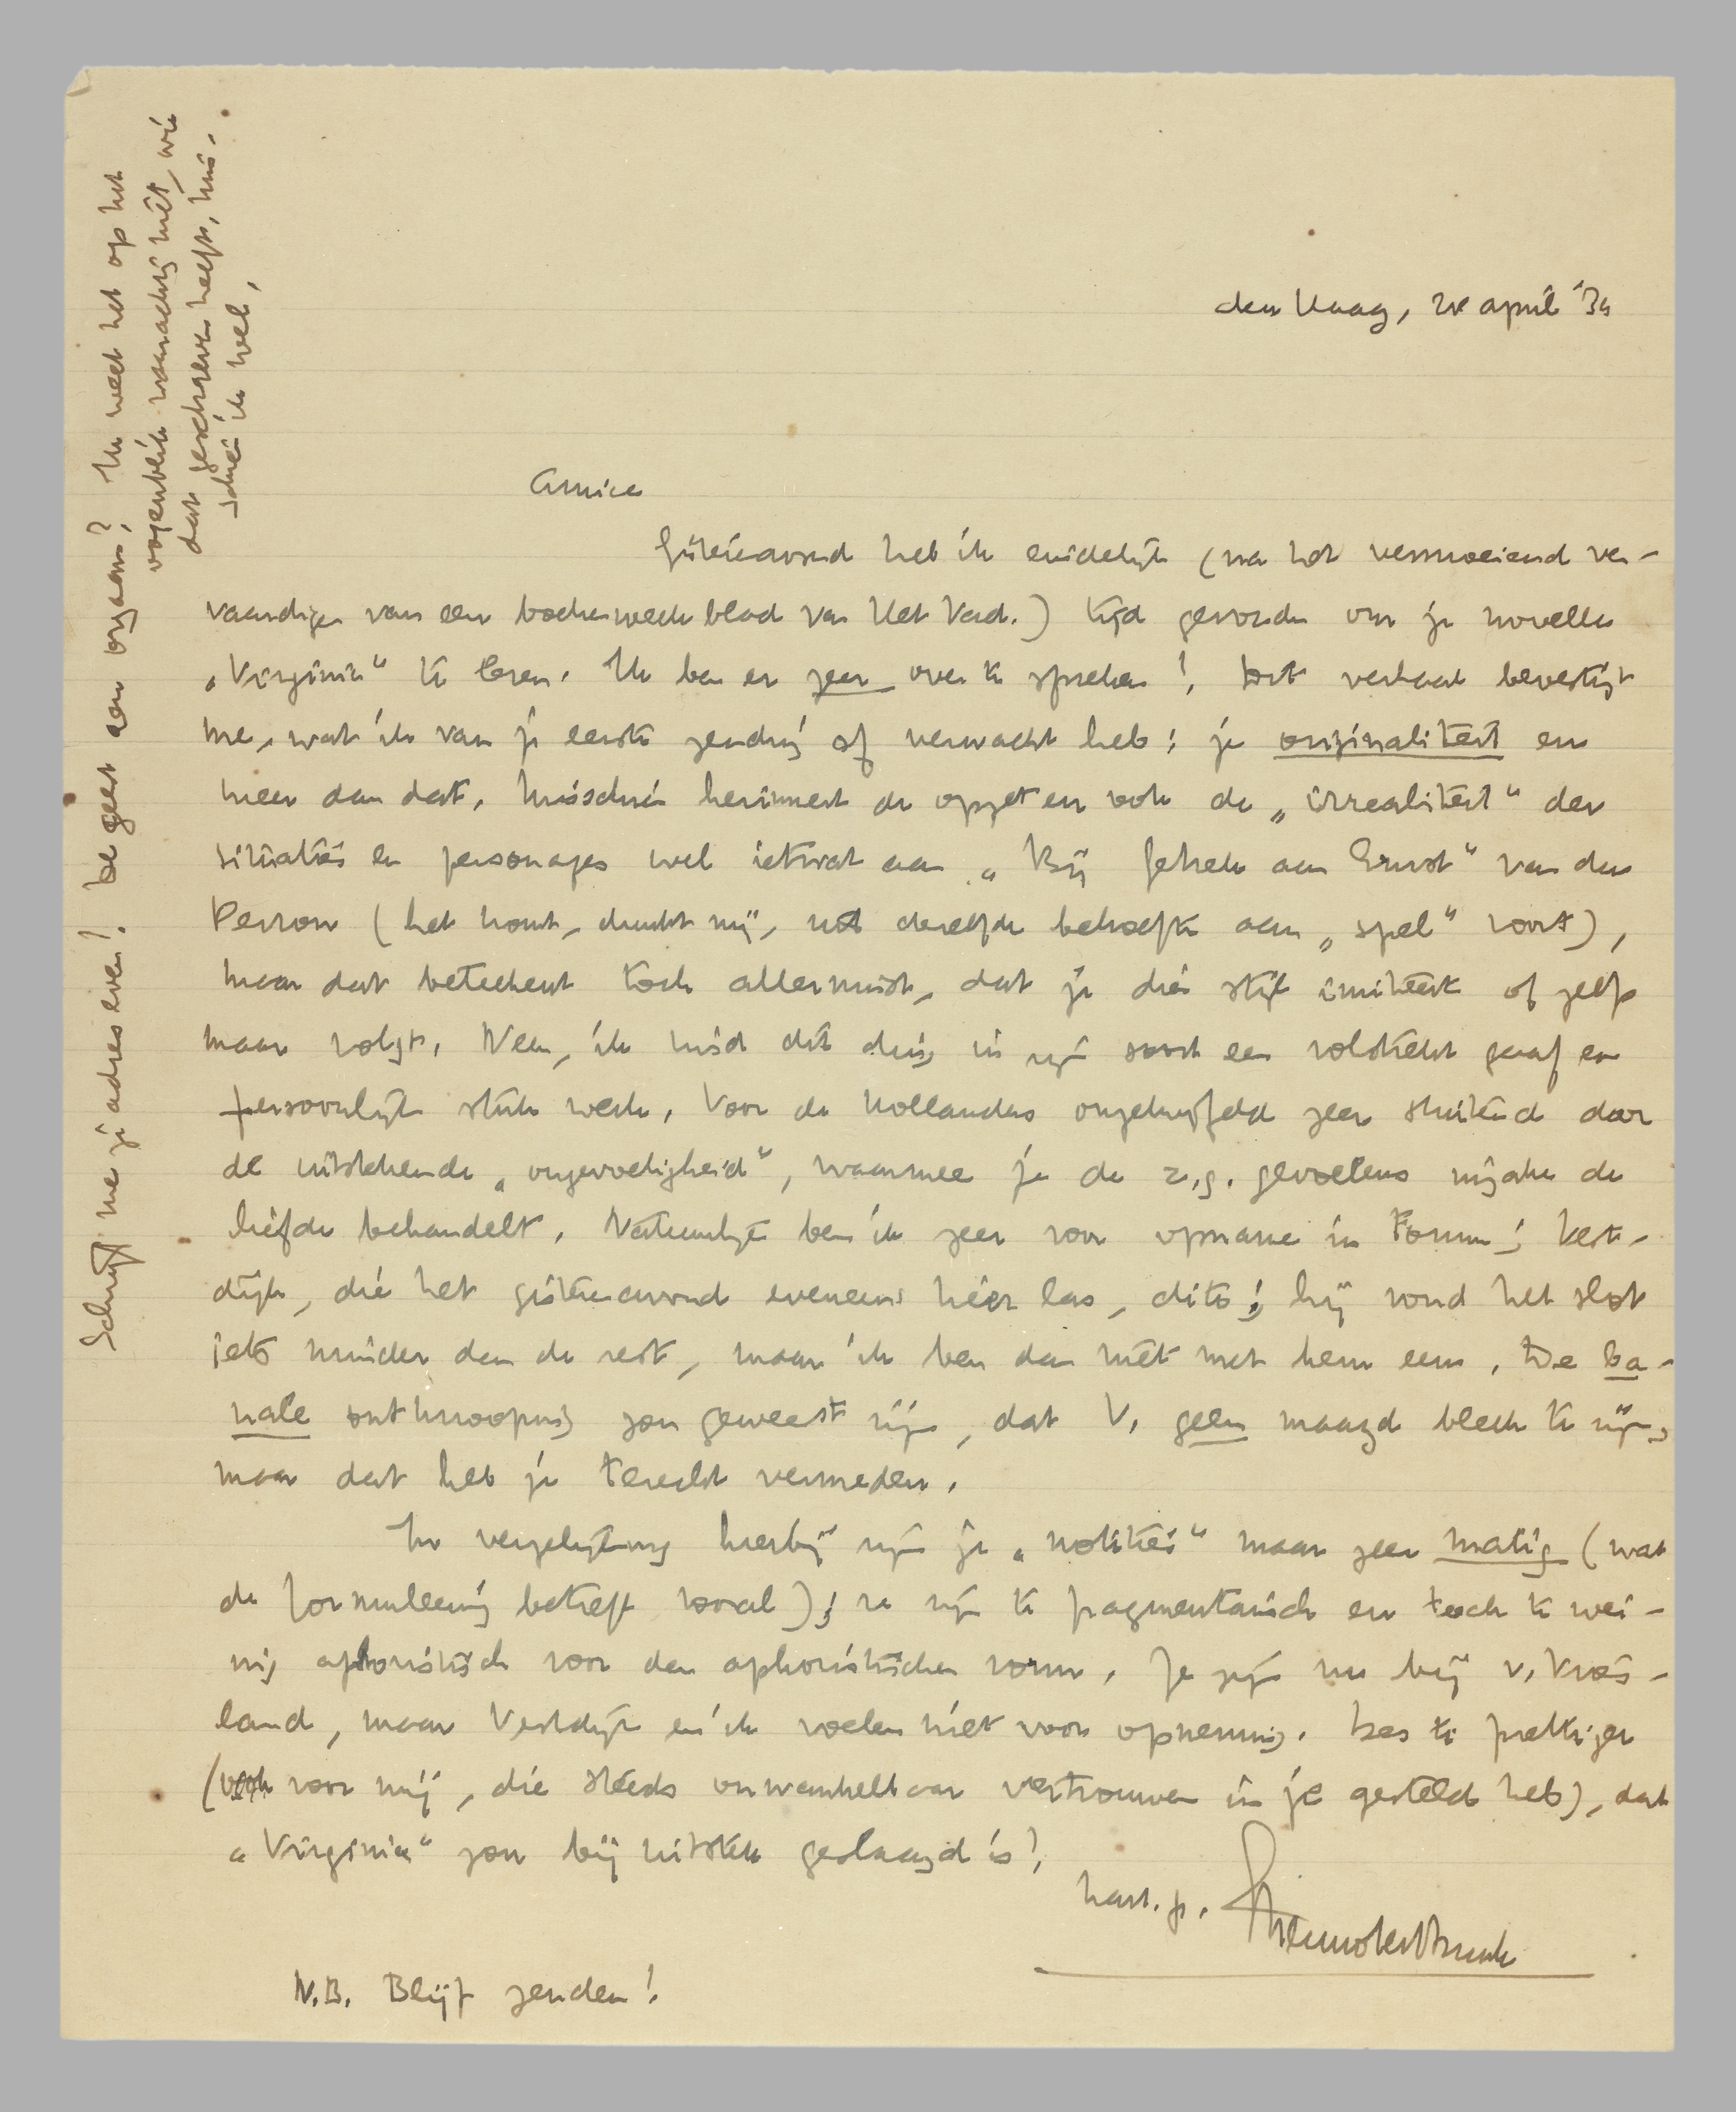 den Haag, 28 april '34
Amice
Gisteravond heb ik eindelijk (na het vermoeiend ver-
vaardigen van een boekenweekblad van Het Vad.) tijd gevonden om je novelle
„Virginia" te lezen. Ik ben er zeer over te spreken! Dit verhaal bevestigt
me, wat ik van je eerste zending af verwacht heb: je originaliteit en
meer dan dat. Misschien herinnert de opzet en ook de „irrealiteit" der
situaties en personages wel ietwat aan „Bij Gebrek aan Ernst" van du
Perron (het komt, dunkt mij, uit dezelfde behoefte aan „spel" voort),
maar dat beteekent toch allerminst, dat je die stijl imiteert of zelfs
maar volgt. Neen, ik vind dit ding in zijn soort een volstrekt gaaf en
persoonlijk stuk werk. Voor de Hollanders ongetwijfeld zeer stuitend door
de uitstekende „ongevoeligheid", waarmee je de z.g. gevoelens inzake de
liefde behandelt. Natuurlijk ben ik zeer voor opname in Forum; Vest-
dijk, die het gisteravond eveneens hier las, dito; hij vond het slot
iets minder dan de rest, maar ik ben dan niet met hem eens. De ba-
nale ontknooping zou geweest zijn, dat V. geen maagd bleek te zijn,
maar dat heb je terecht vermeden.
In vergelijking hierbij zijn je „notities" maar zeer matig (wat
de formuleering betreft vooral); ze zijn te fragmentarisch en toch te wei-
nig aphoristisch voor den aphoristischen vorm. Ze zijn nu bij v. Vries-
land, maar Vestdijk en ik voelen niet voor opneming. Des te prettiger
(ook voor mij, die steeds onwankelbaar vertrouwen in je gesteld heb), dat
„Virginia" zoo bij uitstek geslaagd is!
hart. gr. Menno ter Braak
N.B. Blijf zenden!
Schrijf me je adres even! Je geest een orgaan? Ik weet het op het
oogenblik waarachtig niet, wie
dat geschreven heeft, mis-
schien ik wel.